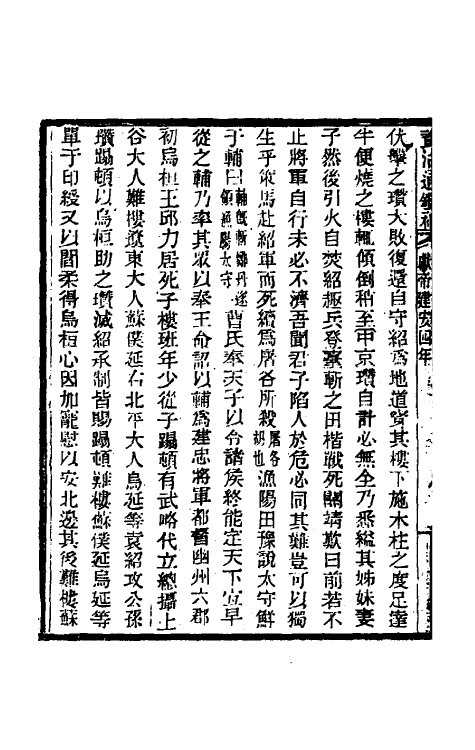 資治通鑑補 獻帝建安四年
伏擊之瓚大敗復還自守紹爲地道穿其樓下施木柱之度足達
半便燒之樓輒傾倒稍至中京瓚自計必無全乃悉縊其姊妹妻
子然後引火自焚紹趣兵登臺斬之田楷戰死關靖歎曰前若不
止將軍自行未必不濟吾聞君子陷人於危必同其難豈可以獨
生乎策馬赴紹軍而死續爲屠各所殺屠各胡也漁陽田豫說太守鮮
于輔曰輔旣斬鄒丹遂領漁陽太守曹氏奉天子以令諸侯終能定天下宜早
從之輔乃率其眾以奉王命詔以輔爲建忠將軍都督幽州六郡
初烏桓王邱力居死子樓班年少從子蹋頓有武略代立總攝上
谷大人難樓遼東大人蘇僕延右北平大人烏延等袁紹攻公孫
瓚蹋頓以烏桓助之瓚滅紹承制皆賜蹋頓難樓蘇僕延烏延等
單于印綬又以閻柔得烏桓心因加寵慰以安北邊其後難樓蘇